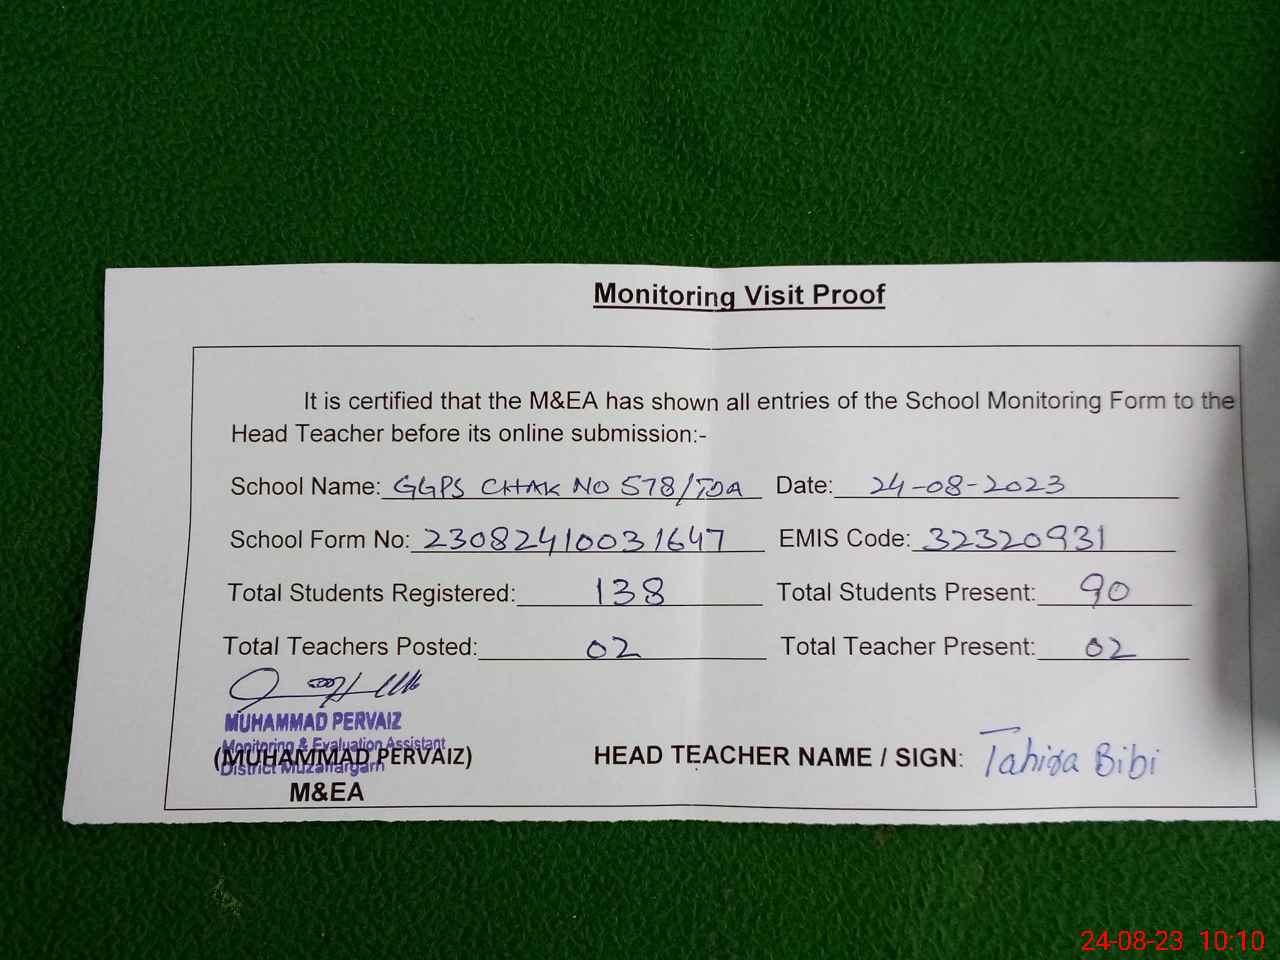 Monitoring Visit Proof
It is certified that the M&EA has shown all entries of the School Monitoring Form to the
Head Teacher before its online submission:-
School Name: GGPS CHAK NO 578/TDA Date: 24-08-2023
School Form No: 23082410031647 EMIS Code: 32320931
Total Students Registered: 138 Total Students Present: 90
Total Teachers Posted: 02 Total Teacher Present: 02
MUHAMMAD PERVAIZ
Monitoring & Evaluation Assistant
(MUHAMMAD PERVAIZ) HEAD TEACHER NAME / SIGN: Tahira Bibi
District Muzaffargarh
M&EA
24-08-23 10:10